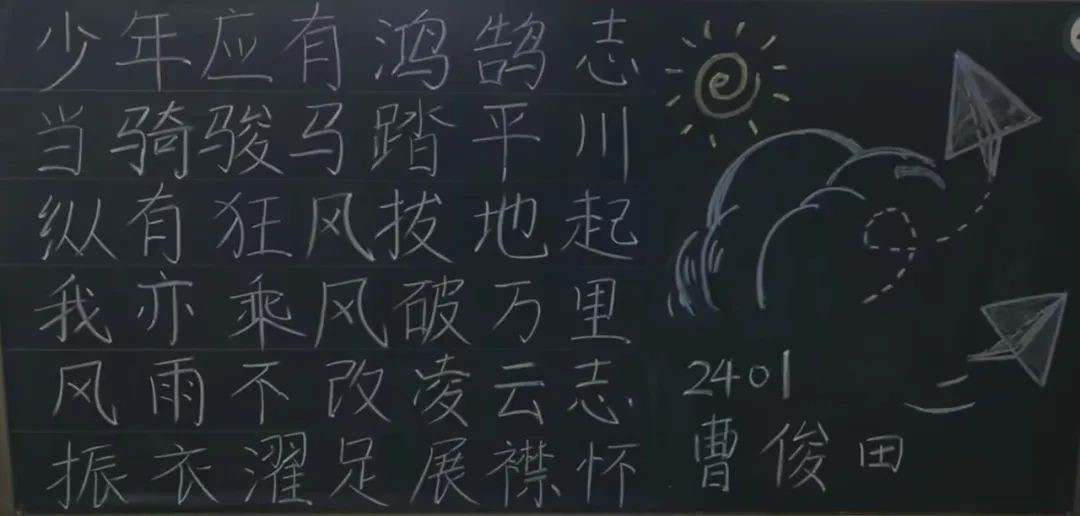 少年应有鸿鹄志
当骑骏马踏平川
纵有狂风拔地起
我亦乘风破万里
风雨不改凌云志
振衣濯足展襟怀
2401
曹俊田